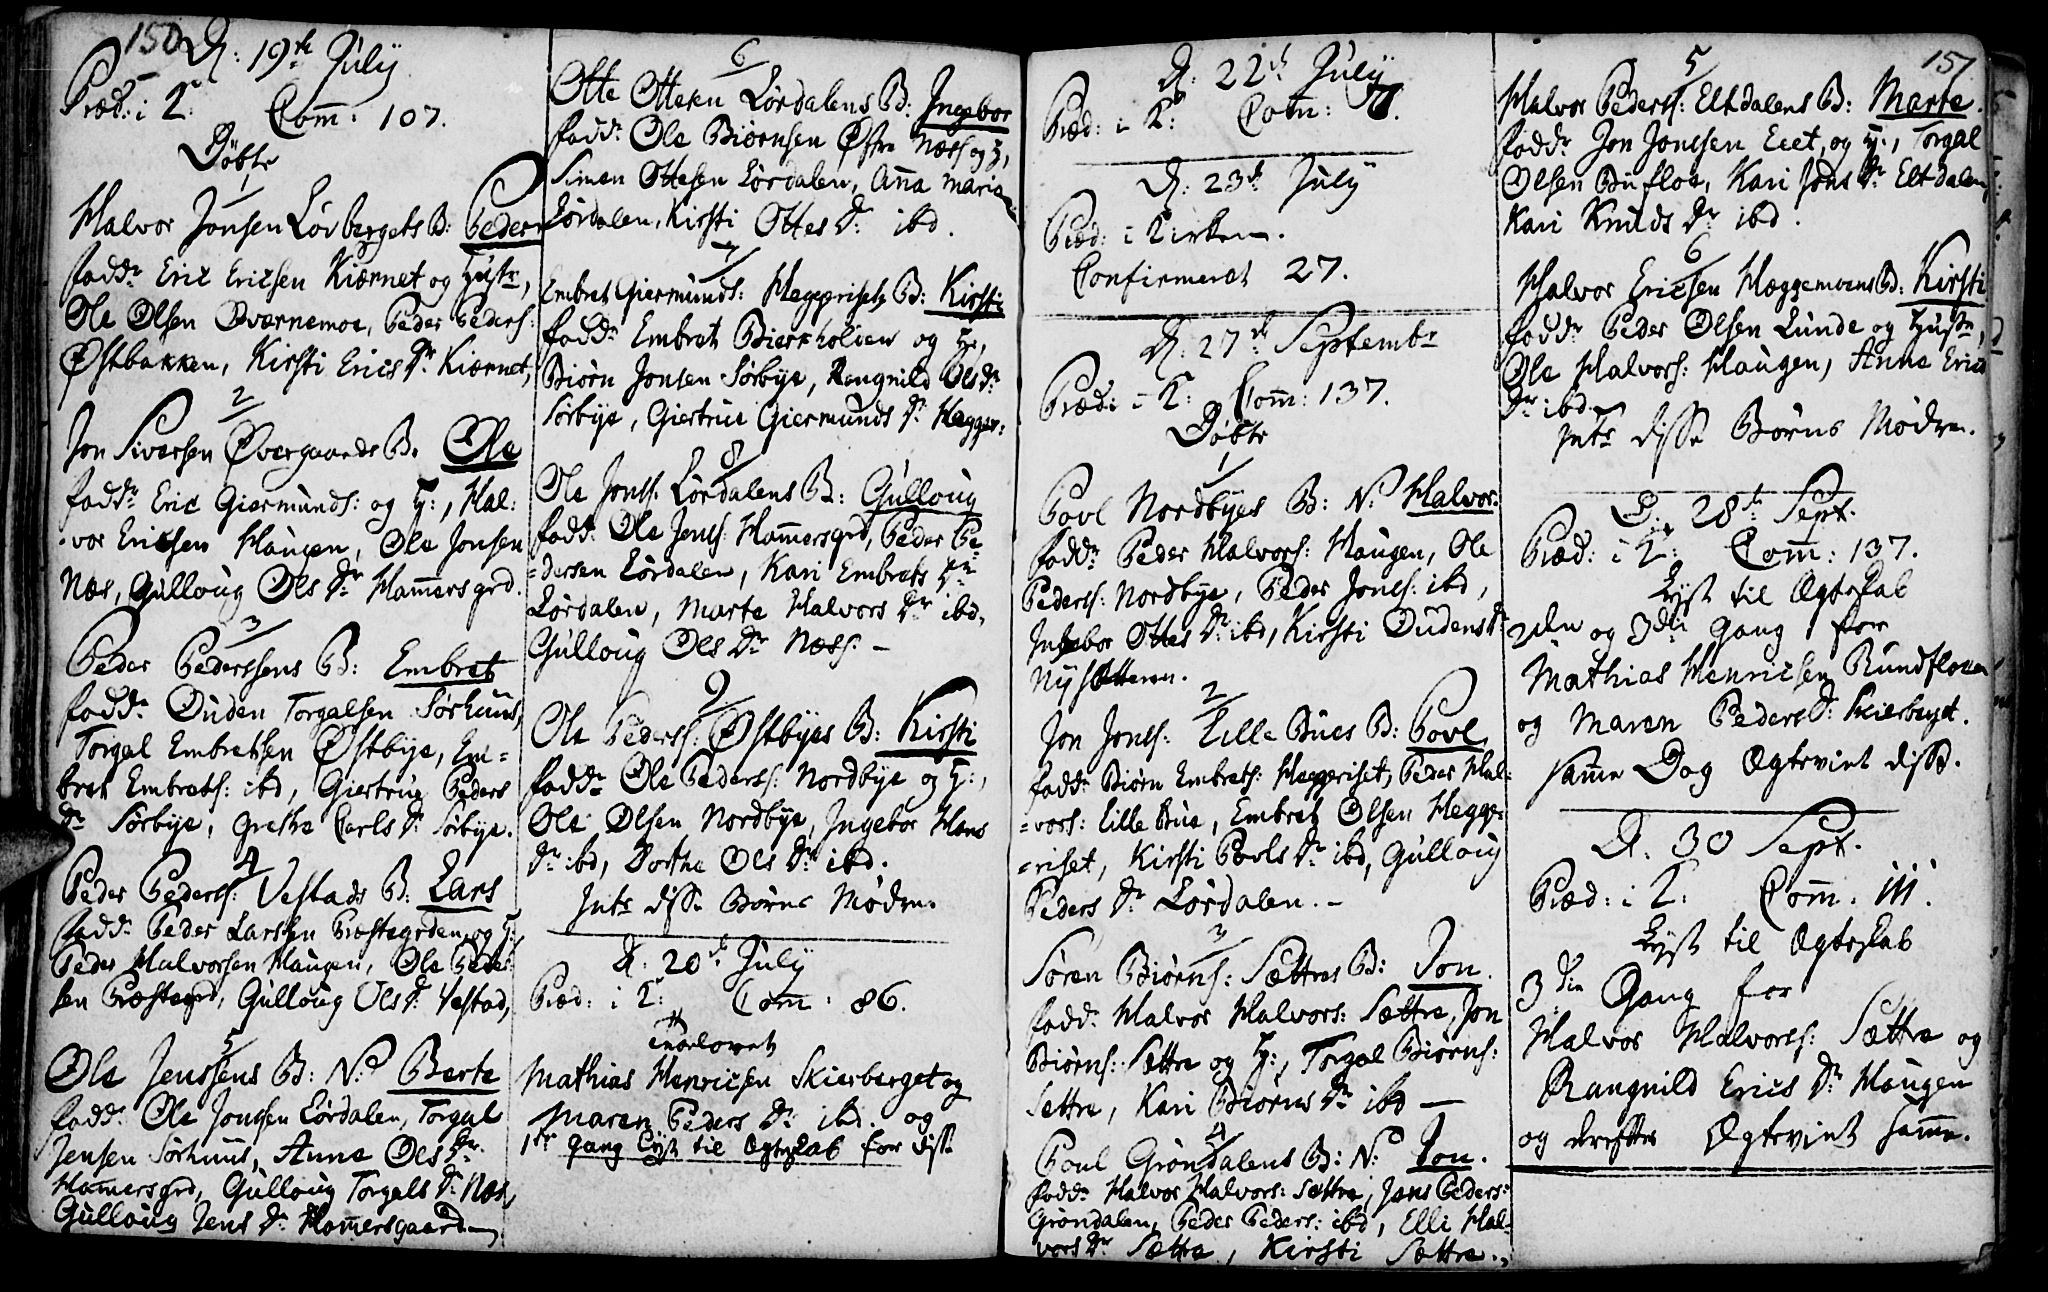 150
D: 19de July
Præd: i K: Com: 107.
Døbte
1
Halvor Jonsen Løvbergets B: Peder
fadd: Eric Ericsen Kiærnet og Hustr,
Ole Olsen Qværnemoe, Peder Peders:
Østbakken, Kirsti Erics Dr Kiærnet,
2
Jon Siversen Øvergaards B: Ole
fadd: Eric Giermunds: og H:, Hal:
vor Ericksen Haugen, Ole Jonsen
Næs, Gulloug Ols Dr Hamersgrd.
3
Peder Pederssens B: Embret
fadd: Ouden Torgalsen Sørhuus,
Torgal Embretsen Østbye, Em=
bret Embrets: ibd, Giertrue Peders
Dr Sørbye, Grethe Carls Dr Sørbye.
4
Peder Peders: Vestads B: Lars
fadd: Peder Larsen Præstegrden og H:
Peder Halvorsen Haugen, Ole Peder:
sen Præstegrd, Gulloug Ols Dr Vestad,
5
Ole Jenssens B: N: Berte
fadd: Ole Jonssen Lørdalen, Torgal
Jensen Sørhuus, Anne Ols Dr
Hamersgrd, Gulloug Torgals Dr Næs,
Gulloug Jens Dr Hamersgaard
6
Otte Ottesen Lørdalens B: Ingebor
fadd: Ole Biørnsen Østre Næss og H,
Simen Ottesen Lørdalen, Anna Maria
Lørdalen, Kirsti Ottes Dr ibd.
7
Embret Giermunds: Heggerisets B: Kirsti
fadd: Embret Bierkholien og H:,
Biørn Jonsen Sørbye, Rangnild Ols Dr
Sørbye, Giertrue Giermunds Dr Hegger:
8
Ole Jons: Lørdalens B: Gulloug
fadd: Ole Jens: Hamersgrd, Peder Pe=
=dersen Lørdalen, Kari Embrets Hu
Lørdalen, Marte Halvors Dr ibd,
Gulloug Ols Dr Næss. –
9
Ole Peders: Østbyes B: Kirsti
fadd: Ole Peders: Nordbye og H:,
Ole Olsen Nordbye, Ingebor Hans
Dr ibd, Dorthe Ols Dr ibd.
Intr disse Børns Mødre.
D: 20de July
Præd: i K: Com: 86.
Trolovet
Mathias Henricsen Skierberget og
Maren Peders Dr ibd. og
1ste gang Lyst til Ægteskab for disse
D: 22de July
Præd: i K: Com: 78.
D: 23de July
Præd: i Kirken.
Confirmeret 27.
D: 27de Septembr
Præd: i K: Com: 137.
Døbte
1
Povl Nordbyes B: N: Halvor.
fadd: Peder Halvors: Haugen, Ole
Peders: Nordbye, Peder Jons: ibd,
Ingebor Ottes Dr ibd, Kirsti Oudens Dr
Nysætteren.
2
Jon Jons: Lille Bues B: Povl
fadd: Biørn Embrets: Heggeriset, Peder Hal=
=vors: Lille Bue, Embret Olsen Hegge=
=riset, Kirsti Povls Dr ibd, Gulloug
Peders Dr Lørdalen. –
3
Søren Biørns: Sættres B: Jon.
fadd: Halvor Halvors: Sættre, Jon
Biørns: Sættre og H:, Torgal Biørns:
Sættre, Kari Biørns Dr ibd —
4
Poul Grøndalens B: N: Jon.
fadd: Halvor Halvors: Sættre, Jens Peders:
Grøndalen, Peder Peders: ibd, Elli Hal=
vors Dr Sættre, Kirsti Sættre.
151
5
Halvor Peders: Eltdalens B: Marte.
fadd: Jon Jonssen Eeet, og H:, Torgal
Olsen Bufloe, Kari Jons Dr Eltdalen,
Kari Knuds Dr ibd.
6
Halvor Ericsen Hæggemoens B: Kirsti
fadd: Peder Olsen Lunde og Hustr,
Ole Halvors: Haugen, Anne Erics
Dr ibd
Intr disse Børns Mødre.
D: 28de Sept.
Præd: i K: Com: 137.
Lyst til Ægteskab
2den og 3die gang for
Mathias Henricsen Rundfloen
og Maren Peders Dr Skierberget.
Samme Dag Ægteviet disse.
D: 30 Sept.
Præd: i K: Com: 111.
Lyst til Ægteskab
3die Gang for
Halvor Halvors: Sættre og
Rangnild Erics Dr Haugen
og derefter Ægteviet samme.